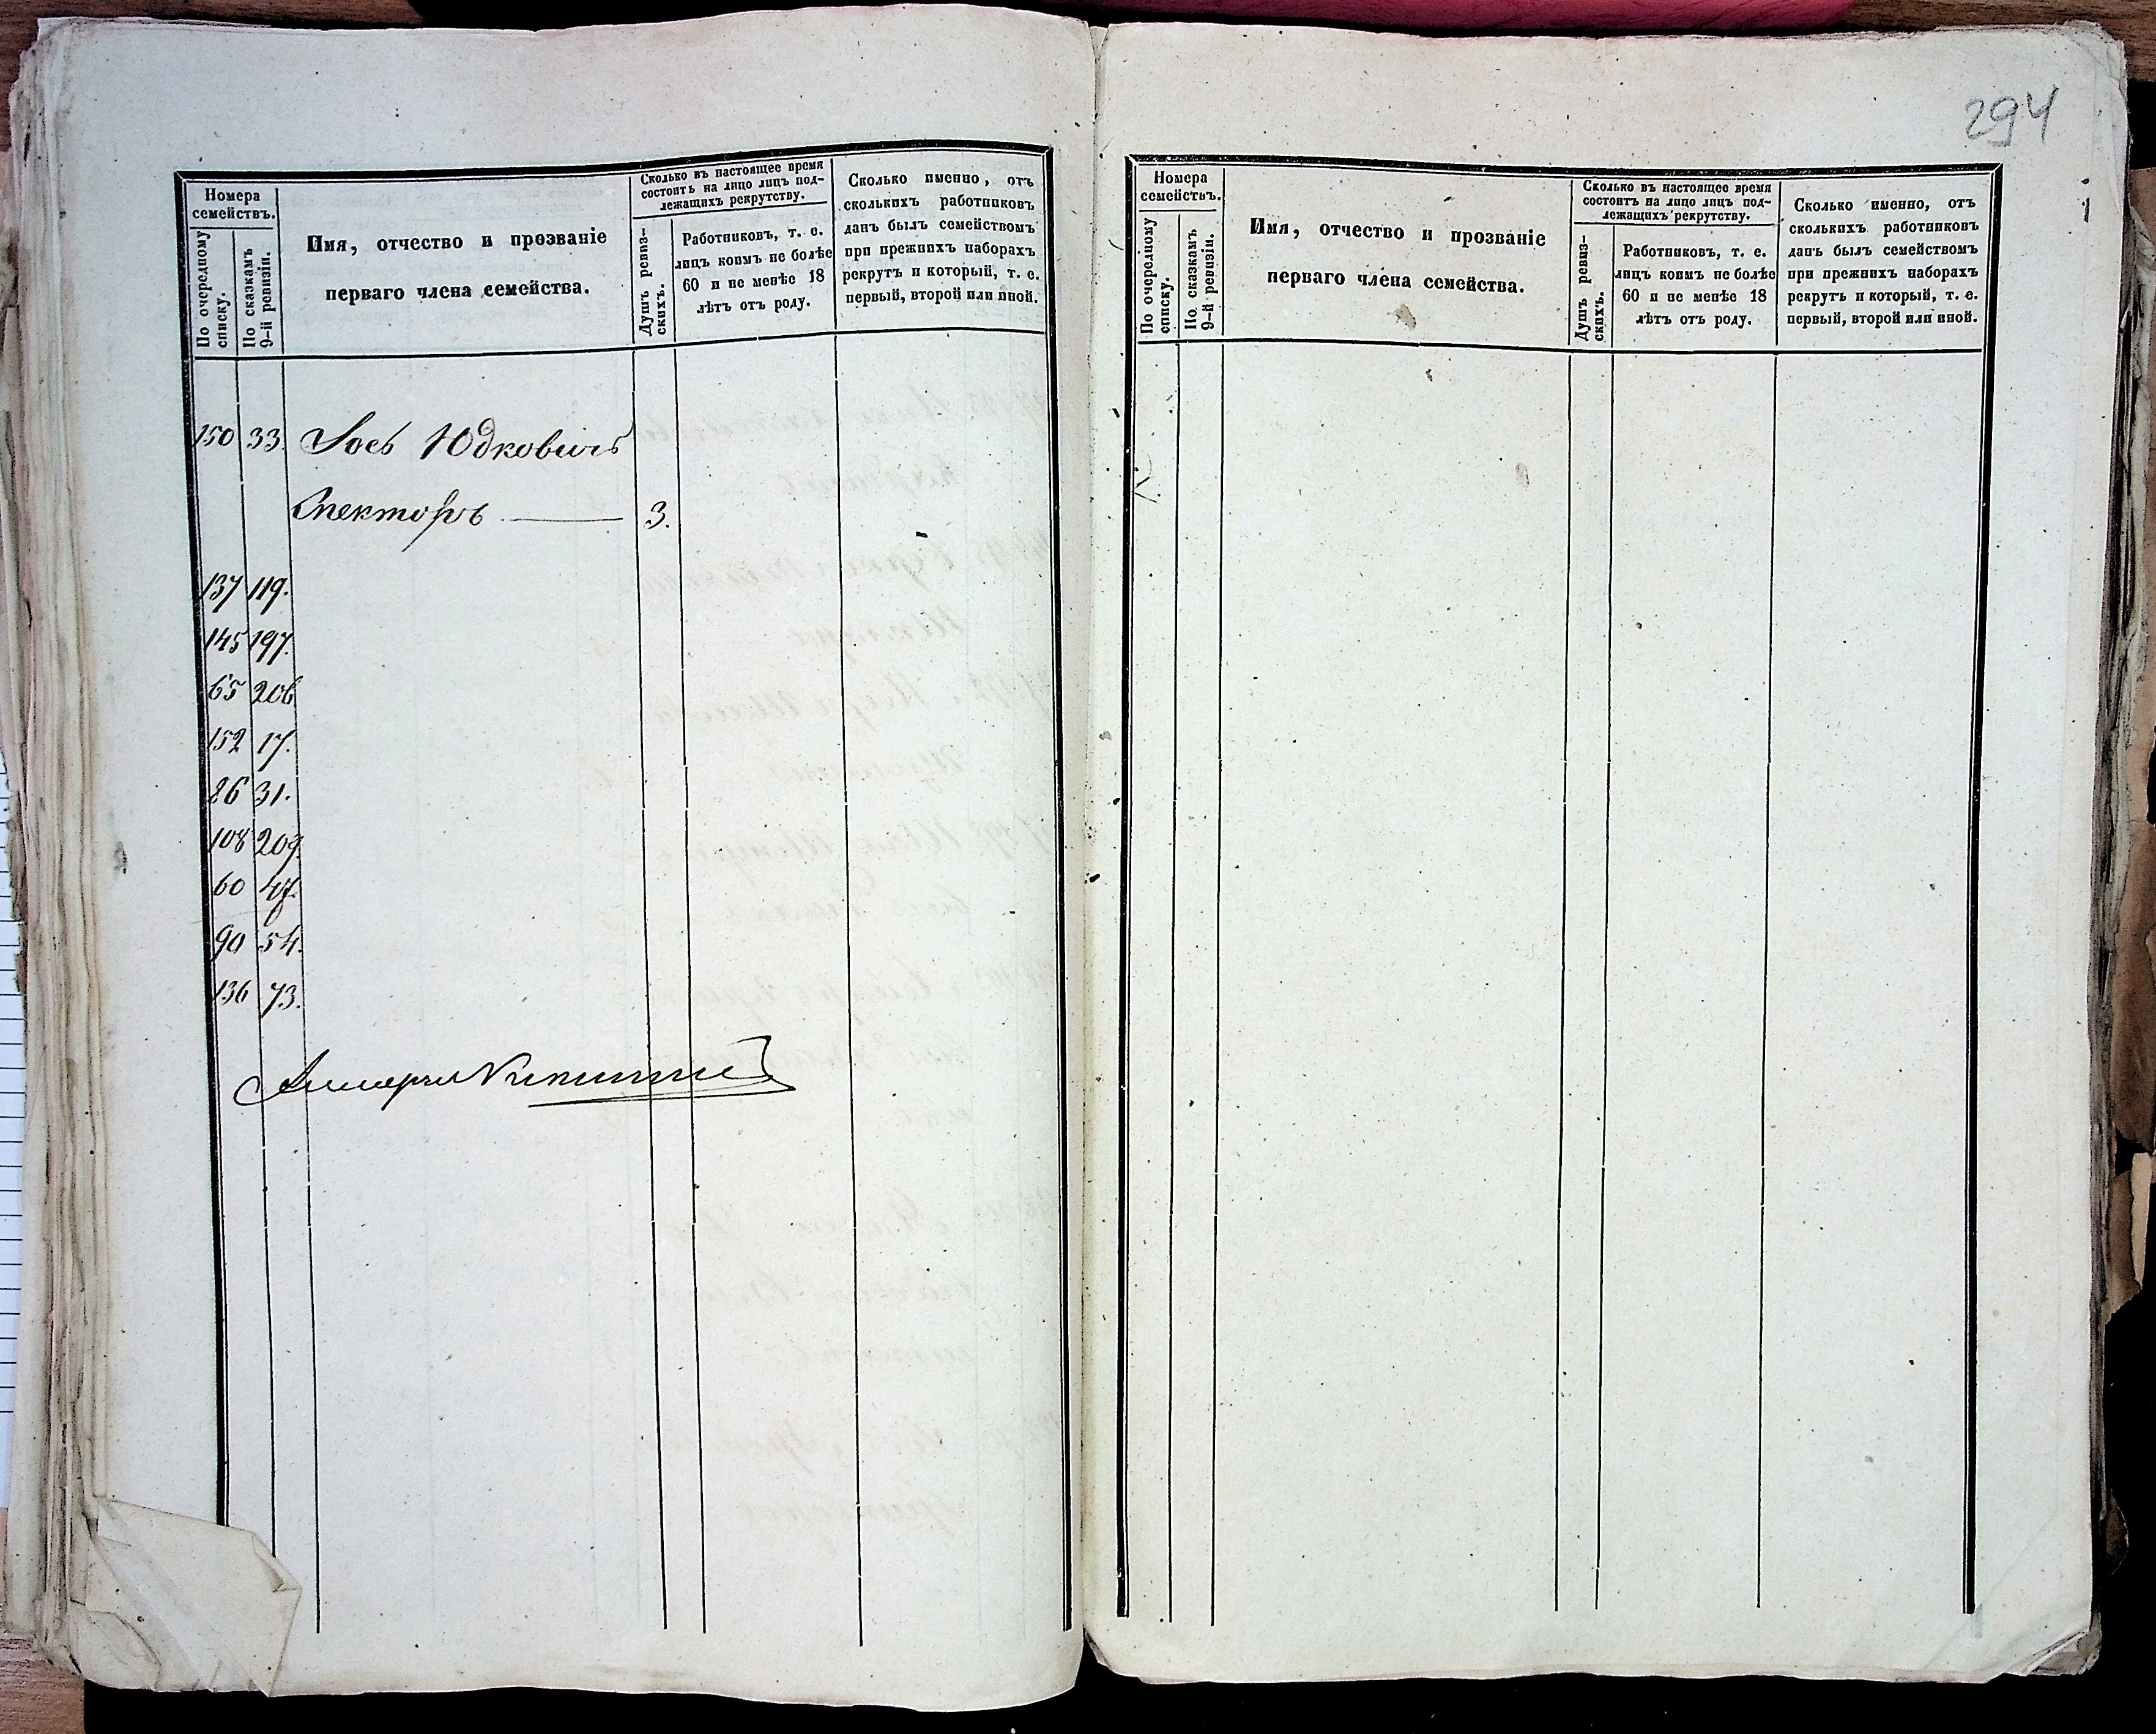 Номера
семействъ.
По очередному
списку.
По сказкамъ
9-й ревизіи.
Имя, отчество и прозваніе
перваго члена семейства.
Сколько въ настоящее время
состоитъ на лицо лицъ под-
лежащихъ рекрутству.
Душъ ревиз-
скихъ.
Работниковъ, т. е.
лицъ коимъ не болѣе
60 и не менѣе 18
лѣтъ отъ роду.
Сколько именно, отъ
сколькихъ работниковъ
данъ былъ семействомъ
при прежнихъ наборахъ
рекрутъ и который, т. е.
первый, второй или иной.
150 33. Іось Юдковичъ
Спекторъ — 3.
137 119.
145 197.
65 206
152 17.
86 31.
108 209.
60 47.
90 54.
136 73.
294
Номера
семействъ.
По очередному
списку.
По сказкамъ
9-й ревизіи.
Имя, отчество и прозваніе
перваго члена семейства.
Сколько въ настоящее время
состоитъ на лицо лицъ под-
лежащихъ рекрутству.
Душъ ревиз-
скихъ.
Работниковъ, т. е.
лицъ коимъ не болѣе
60 и не менѣе 18
лѣтъ отъ роду.
Сколько именно, отъ
сколькихъ работниковъ
данъ былъ семействомъ
при прежнихъ наборахъ
рекрутъ и который, т. е.
первый, второй или иной.